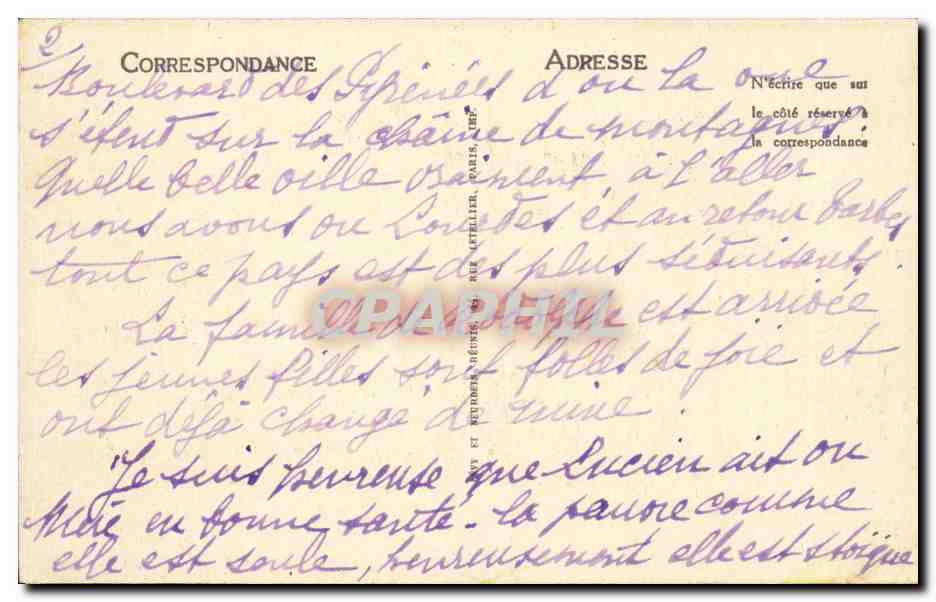 2
CORRESPONDANCE
ADRESSE
N'écrire que sur
le côté réservé à
la correspondance
Boulevard des Pyrénées d'où la vue
s'étend sur la chaîne de montagnes.
Quelle belle ville vraiment à l'aller
nous avons vu Lourdes et au retour Tarbes
tout ce pays est des plus séduisants.
La famille de est arrivée
les jeunes filles sont folles de joie et
ont déjà changé de mine.
Je suis heureuse que Lucien ait vu
Mère en bonne santé - la pauvre comme
elle est seule, heureusement elle est stoïque
LEVY ET NEURDEIN RÉUNIS, 44, RUE LETELLIER, PARIS, IMP.
CPAPHIL